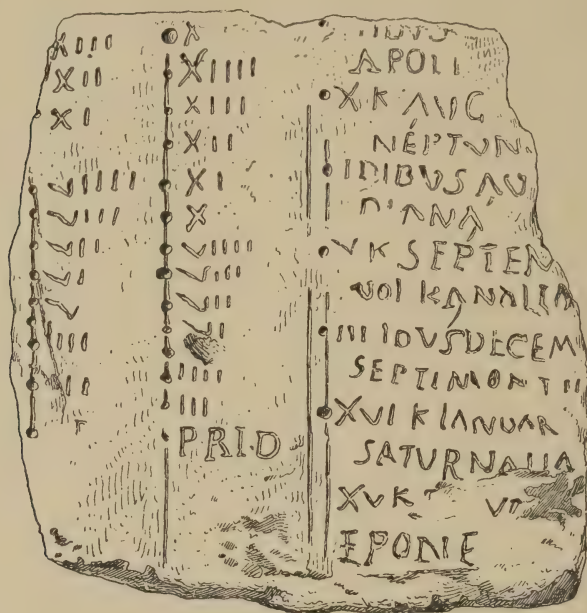 XIII
XII
XI
VIIII
VIII
VII
VI
V
IIII
III
X
XIIII
XIII
XII
XI
X
VIIII
VIII
VII
VI
IIII
III
PRID
APOLI
X K AUG
NEPTUN
IDIBUS AU
DIANA
V K SEPTEN
VOLKANALIA
III IDUS DECEM
SEPTIMONTI
XVI K IANUAR
SATURNALIA
XV K
EPONE